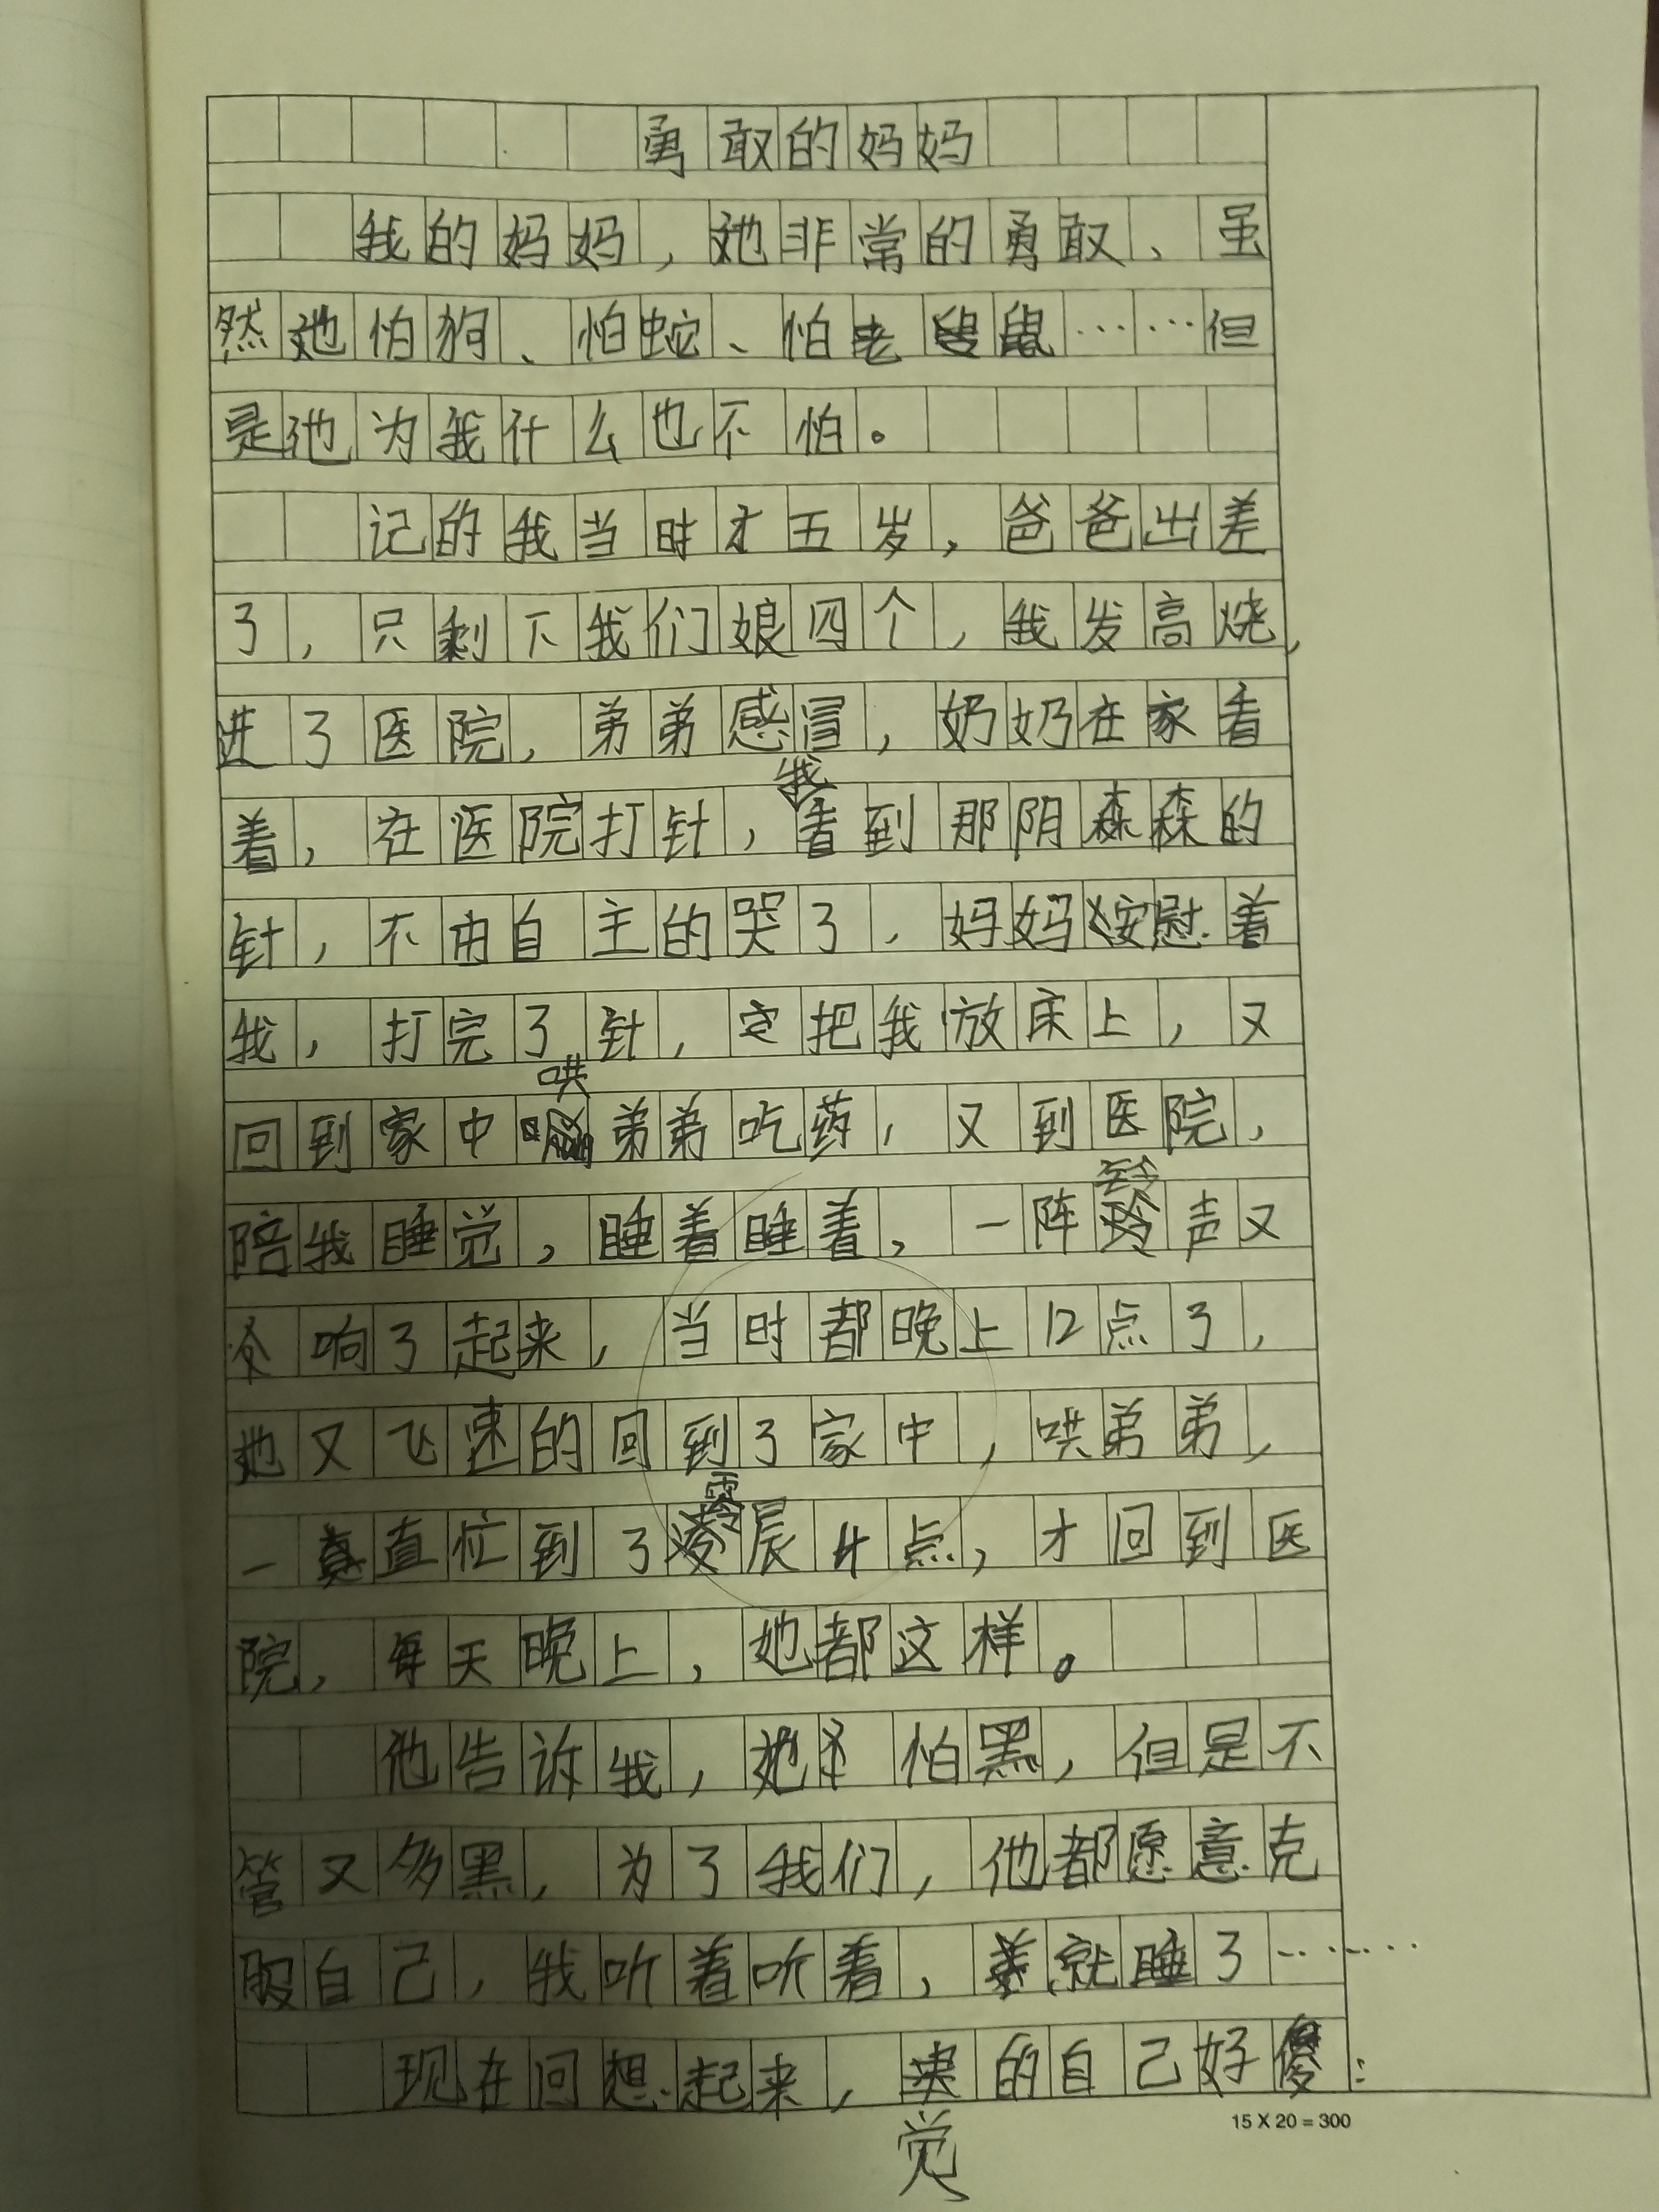 勇敢的妈妈
我的妈妈，她非常的勇敢、虽
然她怕狗、怕蛇、怕老鼠……但
是她为我什么也不怕。
记的我当时才五岁，爸爸出差
了，只剩下我们娘四个，我发高烧，
进了医院，弟弟感冒，奶奶在家看
着，在医院打针，我看到那阴森森的
针，不由自主的哭了，妈妈安慰着
我，打完了针，把我放床上，又
回到家中哄弟弟吃药，又到医院，
陪我睡觉，睡着睡着，一阵铃声又
响了起来，当时都晚上12点了，
她又飞速的回到了家中，哄弟弟，
一直忙到了零辰4点，才回到医
院，每天晚上，她都这样。
他告诉我，她怕黑，但是不
管又多黑，为了我们，他都愿意克
服自己，我听着听着，就睡了……
现在回想起来，觉的自己好傻：
15 X 20 = 300